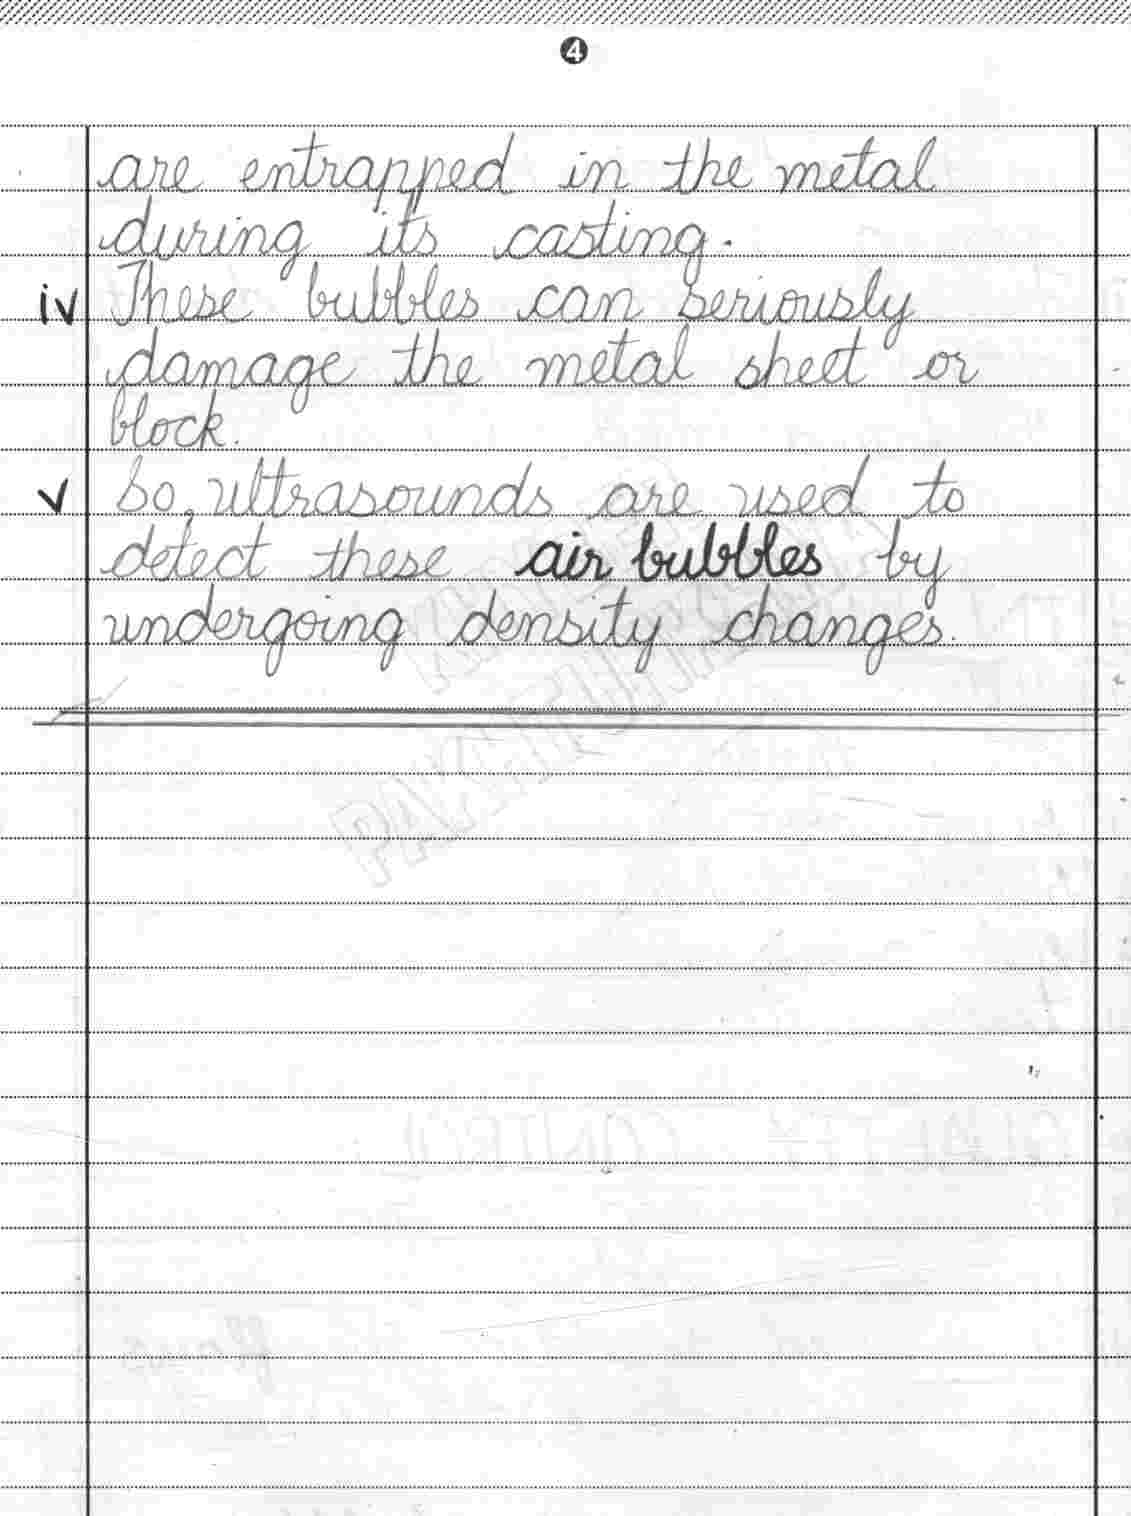 4
are entrapped in the metal
during its casting.
iv These bubbles can seriously
damage the metal sheet or
block.
v So, ultrasounds are used to
detect these air bubbles by
undergoing density changes.